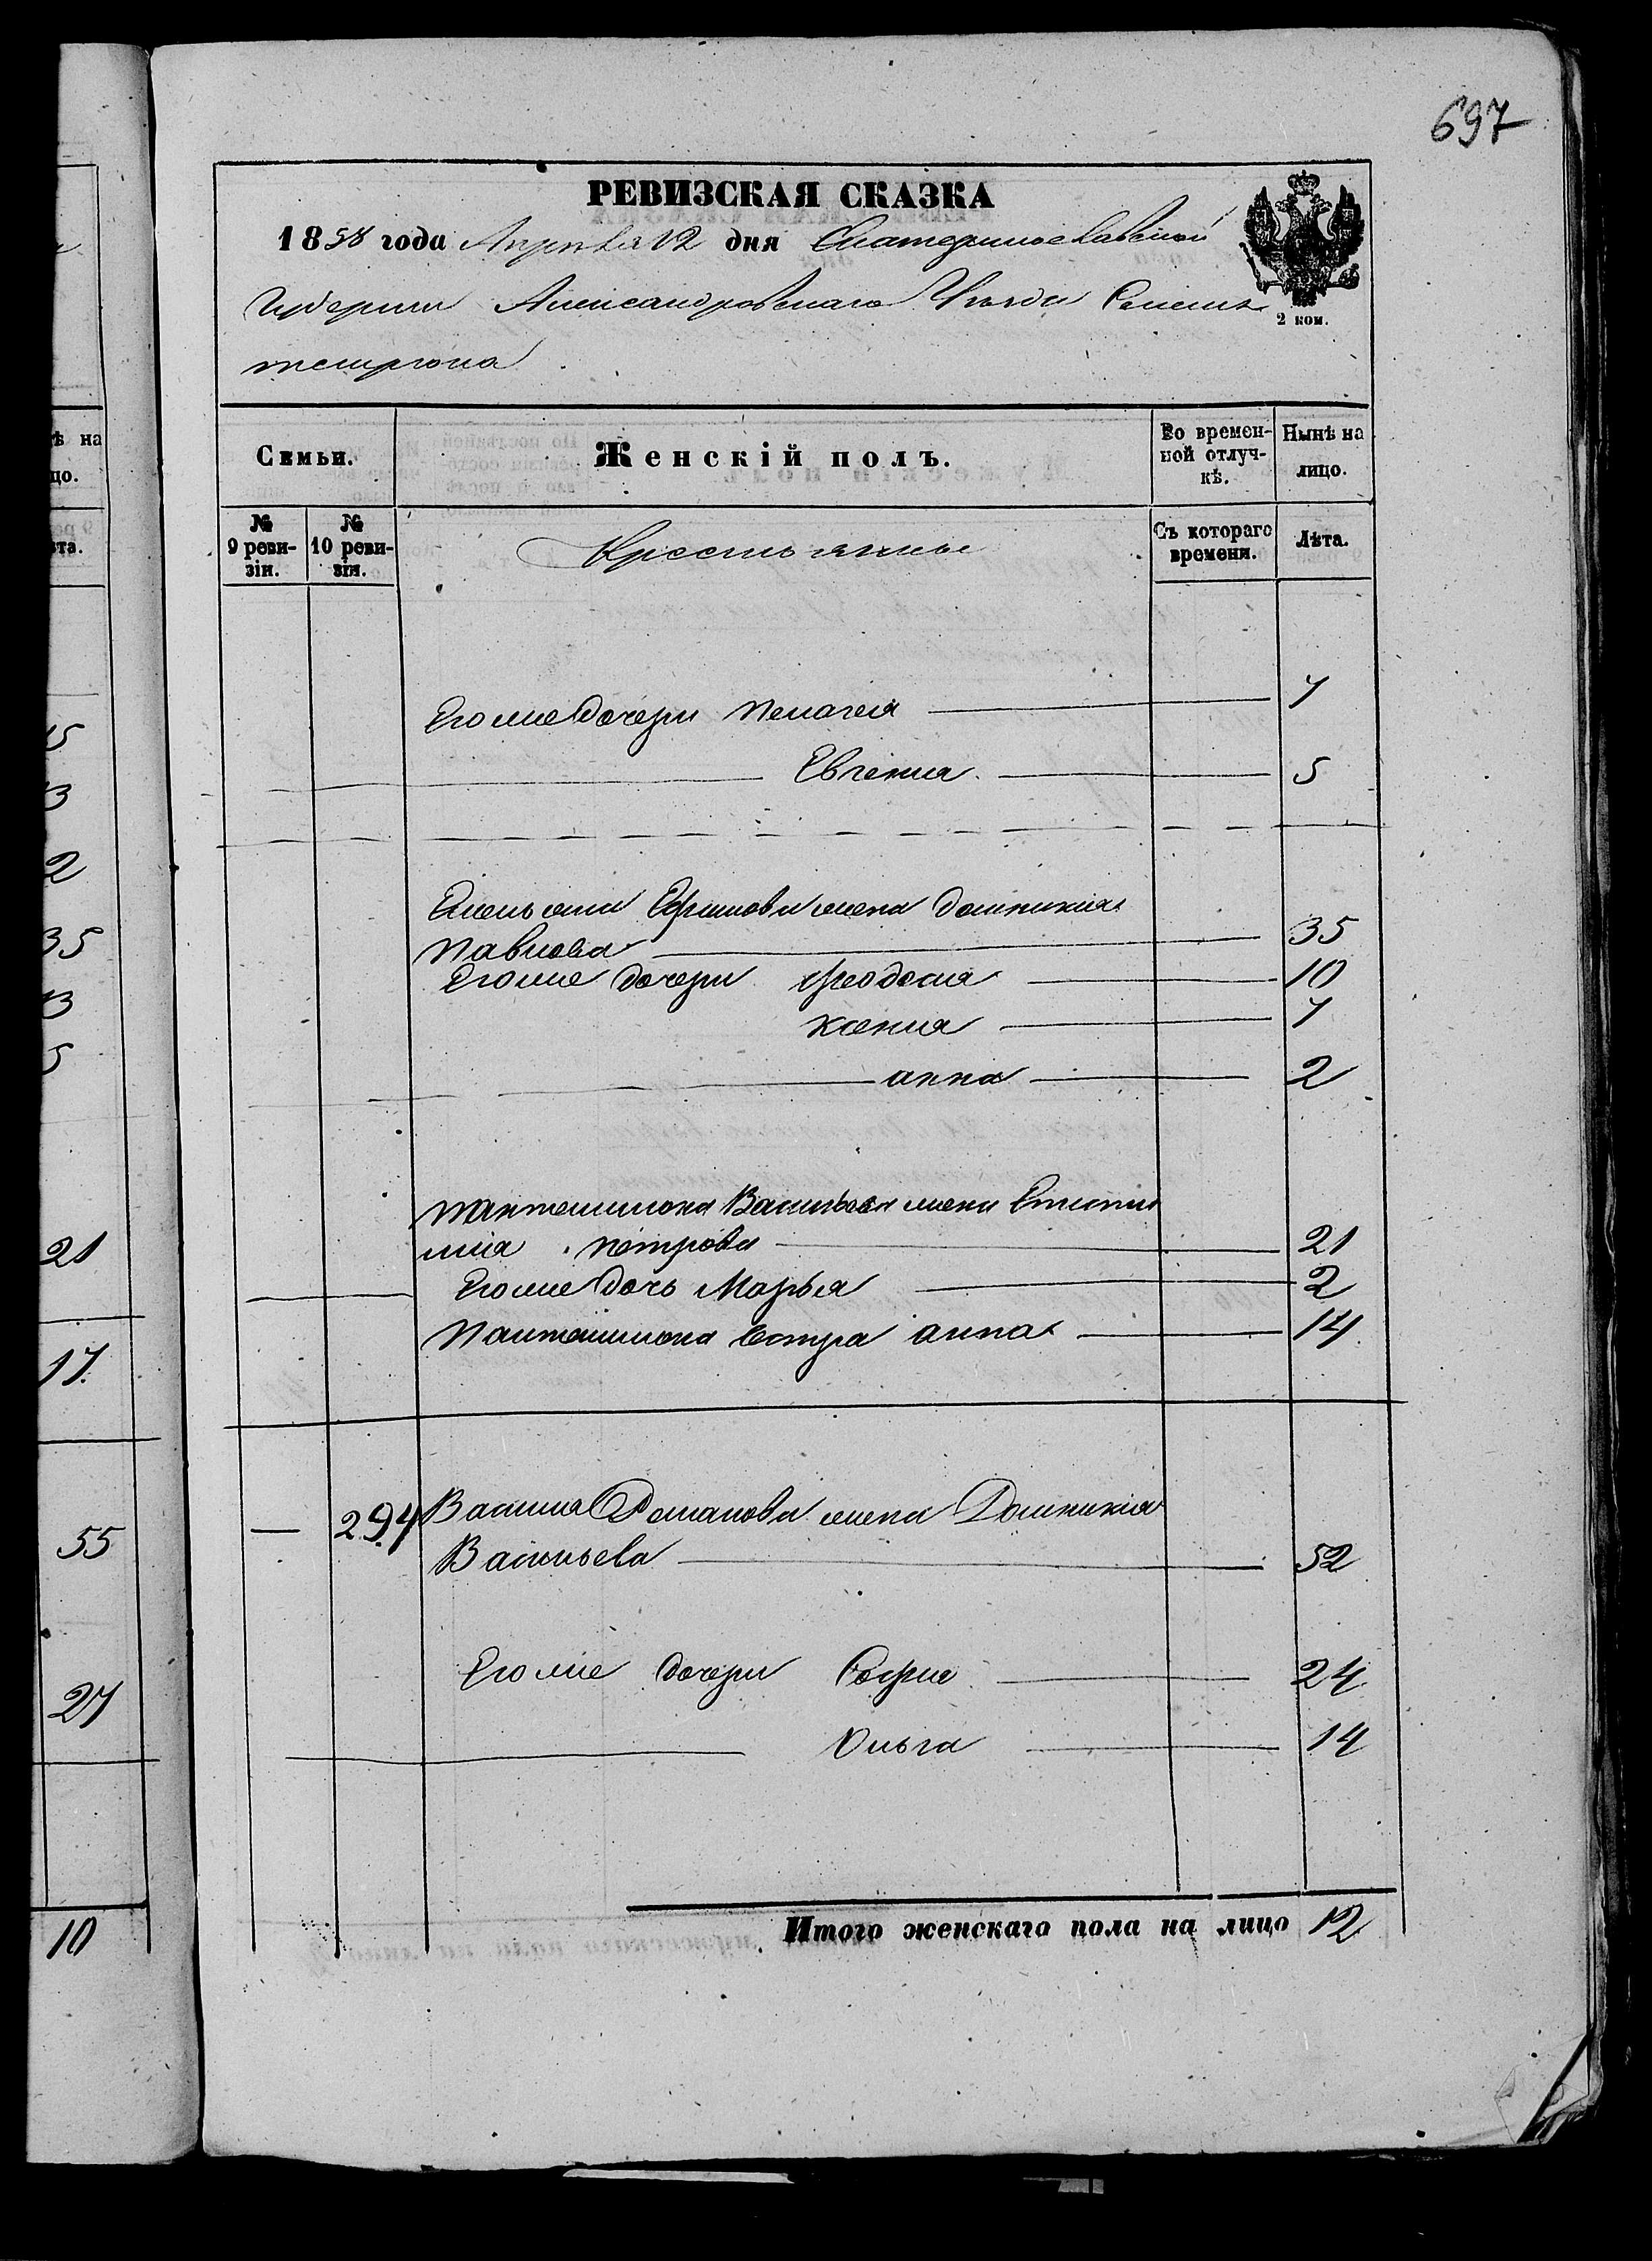 697
РЕВИЗСКАЯ СКАЗКА
1858 года Апреля 12 дня Екатеринославской
Губернии Александровскаго Уезда Селения
2 коп.
Семьи.
Женскій полъ.
Во времен-
ной отлуч-
кѣ.
Нынѣ на
лицо.
№
9 реви-
зіи.
№
10 реви-
зія.
Крестьянные
Съ котораго
времени.
Лѣта.
Его же Дочери Пелагея 7
Евгения 5
Емельяна Ефимова жена Домникия
Павлова 35
Его же дочери Феодосия 10
Ксения 7
анна 2
Пантелимона Васильева жена
Петрова 21
Его же дочь Марья 2
Пантелимона Сестра анна 14
294 Василия Романова жена Домникия
Васильева 52
Его же дочери Софие 24
Ольга 14
Итого женскаго пола на лицо 12
ѣ на
цо.
та.
15
13
2
35
13
5
21
17
55
27
10